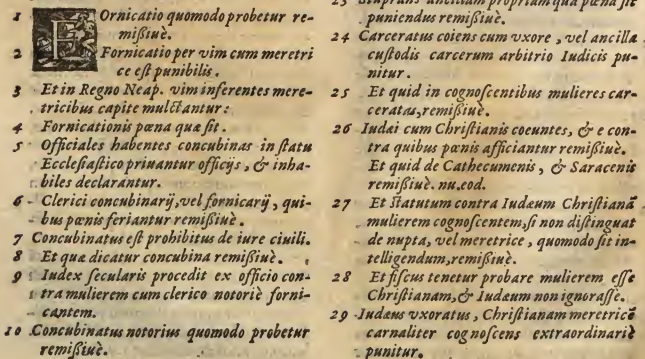 1 Fornicatio quomodo probetur re-
mißiuè.
2 Fornicatio per vim cum meretri
ce est punibilis.
3 Et in Regno Neap. vim inferentes mere-
tricibus capite mulctantur:
4 Fornicationis pœna quæ sit.
5 Officiales habentes concubinas in statu
Ecclesiastico priuantur officijs, & inha-
biles declarantur.
6 Clerici concubinarij, vel fornicarij, qui-
bus pœnis feriantur remißiuè.
7 Concubinatus est prohibitus de iure ciuili.
8 Et quæ dicatur concubina remißiuè.
9 Iudex secularis procedit ex officio con-
tra mulierem cum clerico notoriè forni-
cantem.
10 Concubinatus notorius quomodo probetur
remißiuè.
23 Stuprans ancillam propriam qua pœna sit
puniendus remißiuè.
24 Carceratus coiens cum vxore, vel ancilla
custodis carcerum arbitrio Iudicis pu-
nitur.
25 Et quid in cognoscentibus mulieres car-
ceratas, remißiuè.
26 Iudæi cum Christianis coeuntes, & e con-
tra quibus pœnis afficiantur remißiuè.
Et quid de Cathecumenis, & Saracenis
remißiuè. nu. eod.
27 Et Statutum contra Iudæum Christianā
mulierem cognoscentem, si non distinguat
de nupta, vel meretrice, quomodo sit in-
telligendum, remißiuè.
28 Et fiscus tenetur probare mulierem esse
Christianam, & Iudæum non ignorasse.
29 Iudæus vxoratus, Christianam meretricē
carnaliter cognoscens extraordinariè
punitur.